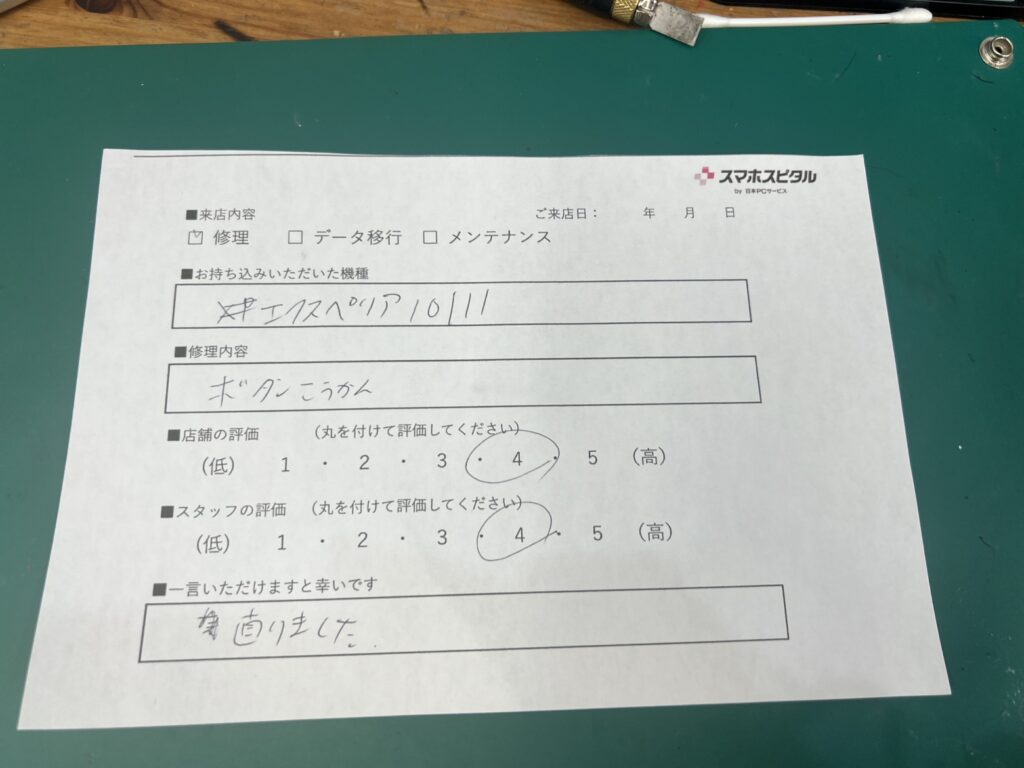 スマホスピタル
by 日本PCサービス
■来店内容 ご来店日： 年 月 日
☑ 修理 □ データ移行 □ メンテナンス
■お持ち込みいただいた機種
エクスペリア 10 III
■修理内容
ボタンこうかん
■店舗の評価 （丸を付けて評価してください）
（低） 1 ・ 2 ・ 3 ・ 4 ・ 5 （高）
■スタッフの評価 （丸を付けて評価してください）
（低） 1 ・ 2 ・ 3 ・ 4 ・ 5 （高）
■一言いただけますと幸いです
直りました.